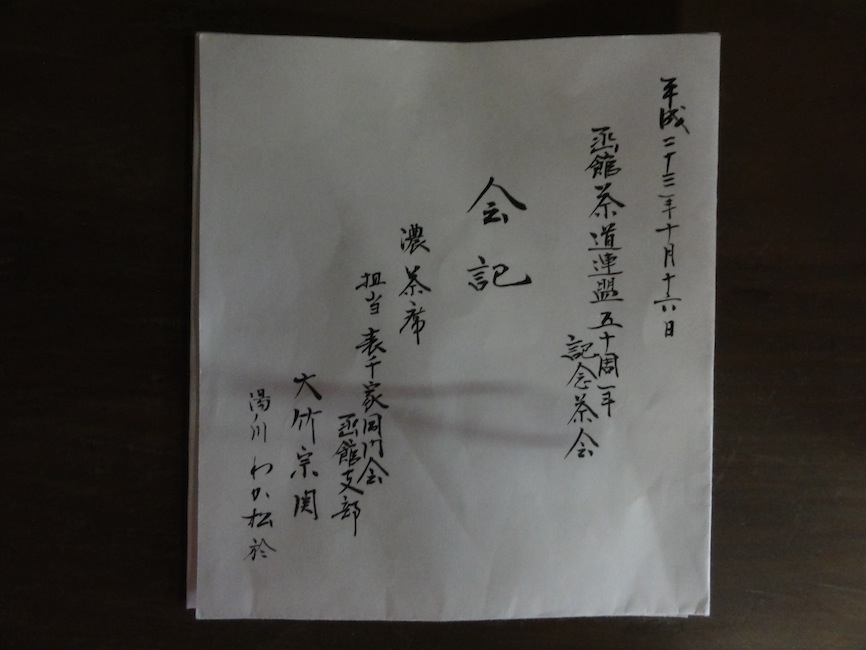 平成二十三年十月十六日
函館茶道連盟五十周年
記念茶会
会記
濃茶席
担当 表千家同門会
函館支部
大竹宗関
湯川 わか松 於